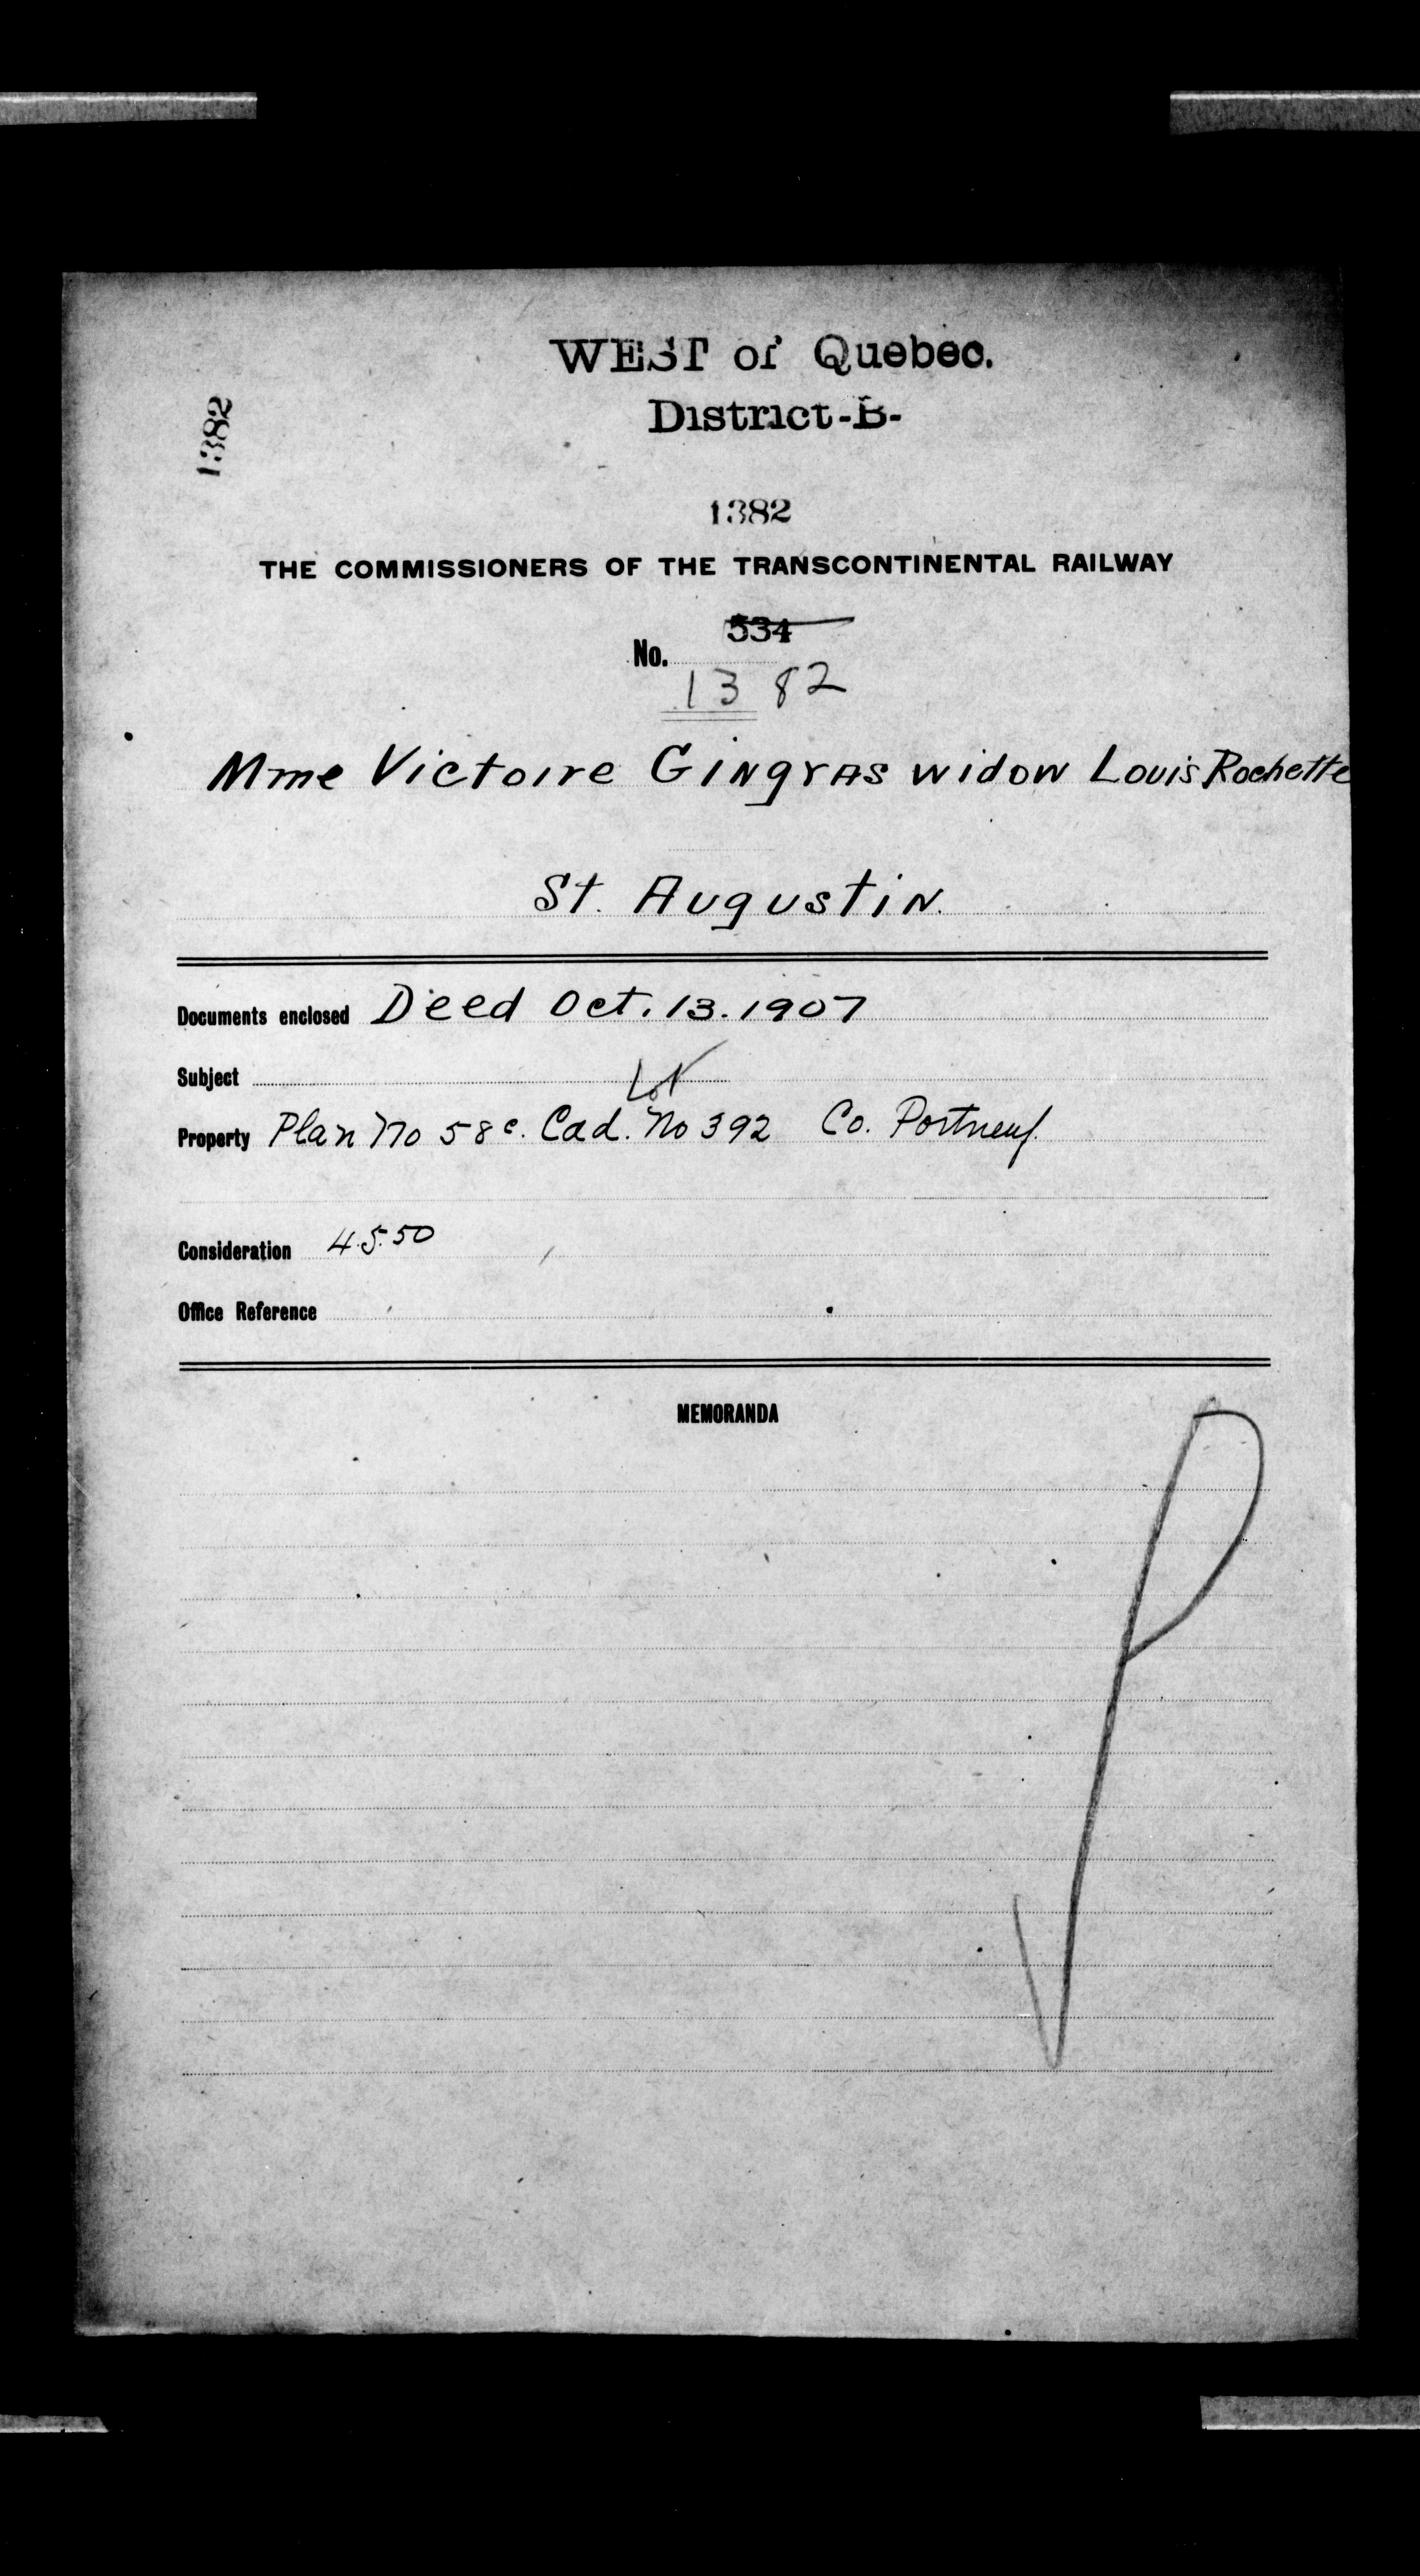 WEST of Quebec.
District-B-
1382
1382
THE COMMISSIONERS OF THE TRANSCONTINENTAL RAILWAY
534
No.
1382
Mme Victoire Gingras widow Louis Rochette
St. Augustin.
Documents enclosed Deed Oct. 13. 1907
Subject
Lot
Property Plan No 58c. Cad. No 392 Co. Portneuf.
Consideration 45.50
Office Reference
MEMORANDA
P